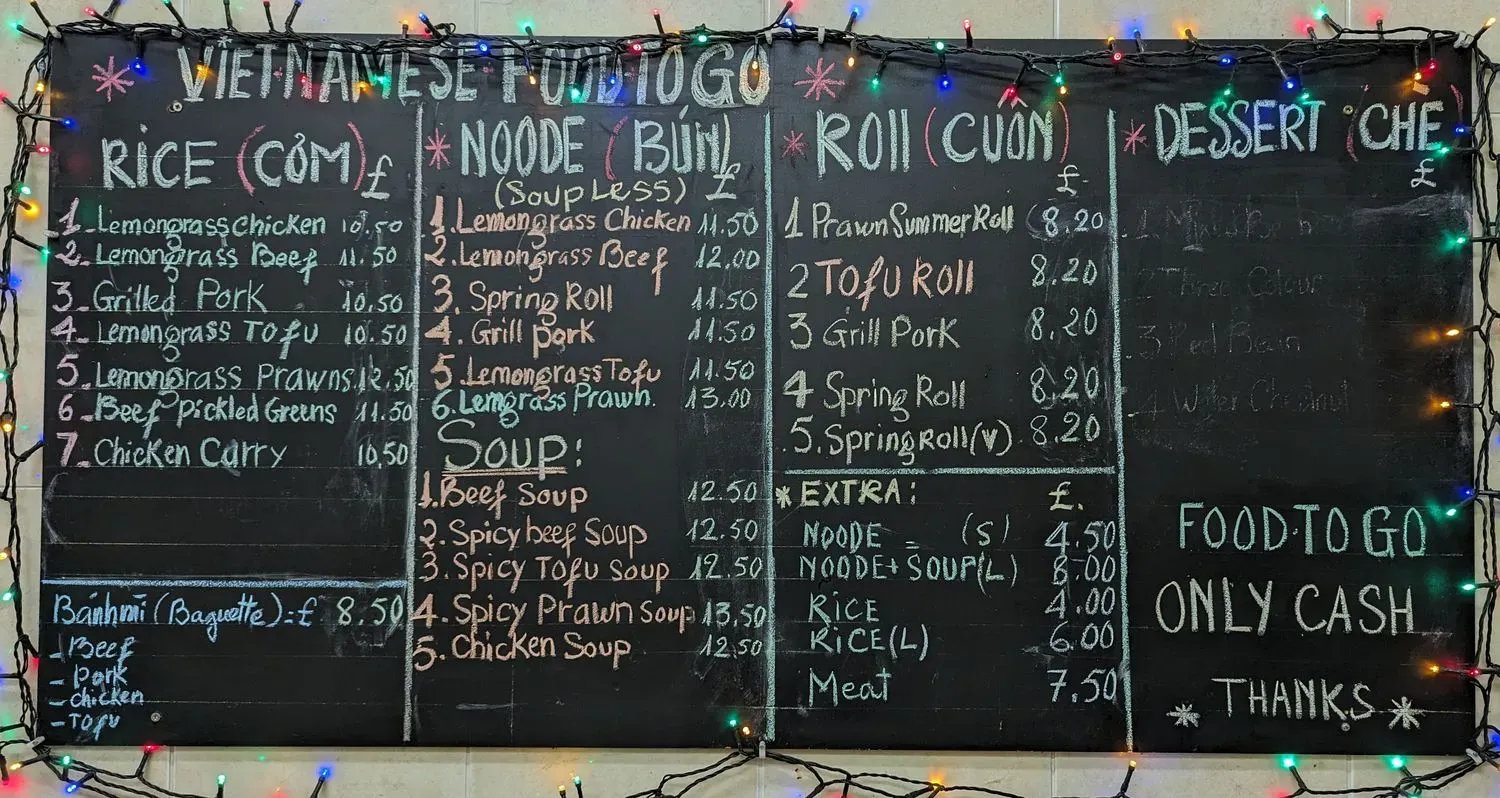 VIETNAMESE FOOD TO GO
RICE (CƠM) £
1_Lemongrass chicken 10.50
2_Lemongrass Beef 11.50
3_Grilled Pork 10.50
4_Lemongrass Tofu 10.50
5_Lemongrass Prawns. 12.50
6_Beef pickled Greens 11.50
7_Chicken Carry 10.50
Bánhmì (Baguette)=£ 8.50
_ Beef
_ Pork
_ Chicken
_ Tofu
NOODE (BÚN)
(Soup Less) £
1.Lemongrass Chicken 11.50
2.Lemongrass Beef 12.00
3. Spring Roll 11.50
4. Grill pork 11.50
5.Lemongrass Tofu 11.50
6.Lemgrass Prawn. 13.00
Soup:
1.Beef Soup 12.50
2.Spicy beef Soup 12.50
3.Spicy Tofu Soup 12.50
4.Spicy Prawn Soup 13.50
5.Chicken Soup 12.50
ROLL (CUỐN)
£
1 Prawn Summer Roll 8.20
2 Tofu Roll 8.20
3 Grill Pork 8.20
4 Spring Roll 8.20
5.Spring Roll(V) 8.20
*EXTRA: £.
NOODE = (S) 4.50
NOODE+SOUP(L) 8.00
RICE 4.00
RICE(L) 6.00
Meat 7.50
DESSERT (CHE)
£
2 Three Colour
3 Red Bean
4 Water Chestnut
FOOD TO GO
ONLY CASH
* THANKS *